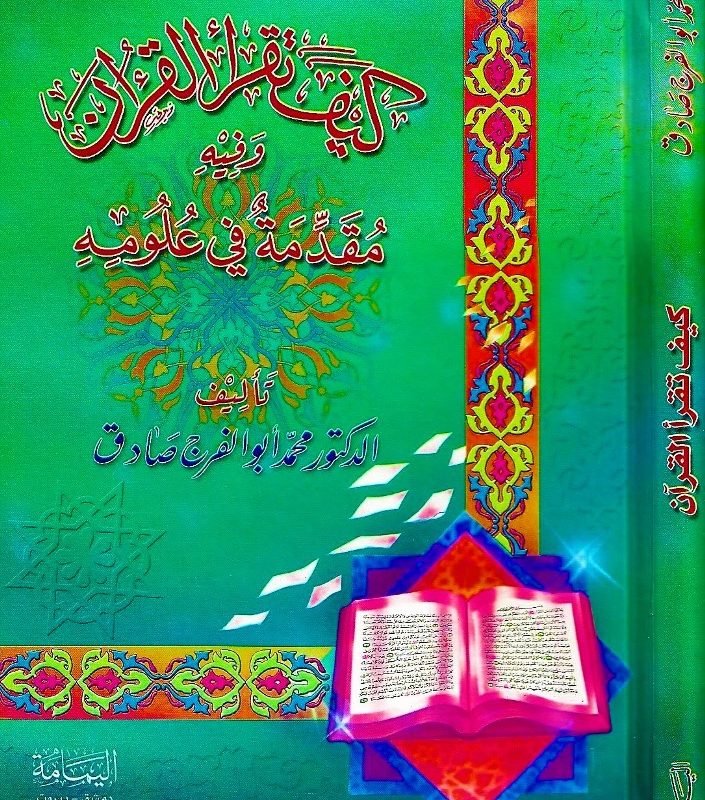 كَيْفَ تَقْرَأُ الْقُرْآنَ
وَفِيْهِ
مُقَدِّمَةٌ فِي عُلُومِهِ
تَألِيْف
الدكتور محمّد أبو الفرج صَادق
اليمامة
محمّد أبو الفرج صَادق
كيف تقرأ القرآن